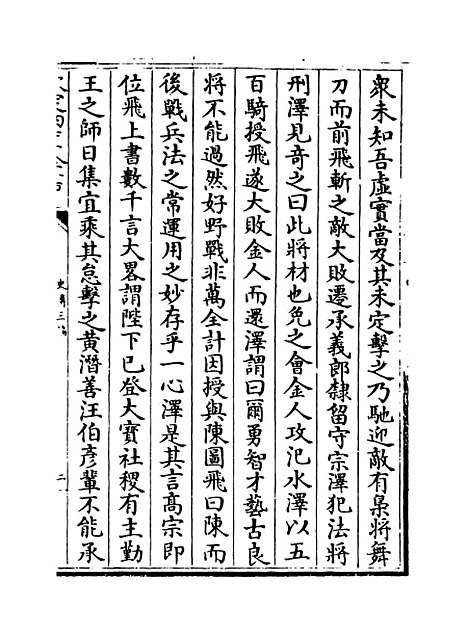 衆未知吾虚實當及其未定擊之乃馳迎敵有梟將舞
刀而前飛斬之敵大敗遷承義郎隸留守宗澤犯法將
刑澤見奇之曰此將材也免之會金人攻汜水澤以五
百騎授飛遂大敗金人而還澤謂曰爾勇智才藝古良
將不能過然好野戰非萬全計因授與陳圖飛曰陳而
後戰兵法之常運用之妙存乎一心澤是其言髙宗即
位飛上書數千言大畧謂陛下已登大寳社稷有主勤
王之師日集宜乘其怠擊之黄潛善汪伯彦輩不能承